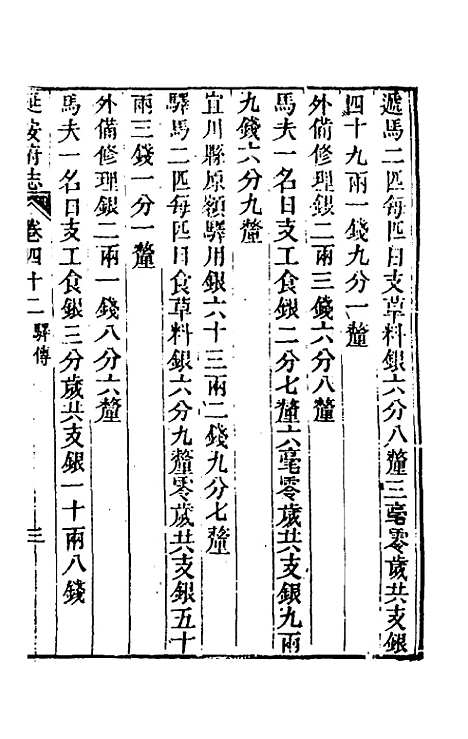 遞馬二匹每匹日支草料銀六分八釐三毫零歲共支銀
四十九兩一錢九分一釐
外備修理銀二兩三錢六分八釐
馬夫一名日支工食銀二分七釐六毫零歲共支銀九兩
九錢六分九釐
宜川縣原額驛用銀六十三兩二錢九分七釐
驛馬二匹每匹日食草料銀六分九釐零歲共支銀五十
兩三錢一分一釐
外備修理銀二兩一錢八分六釐
馬夫一名日支工食銀三分歲共支銀一十兩八錢
延安府志 卷四十二 驛傳 三